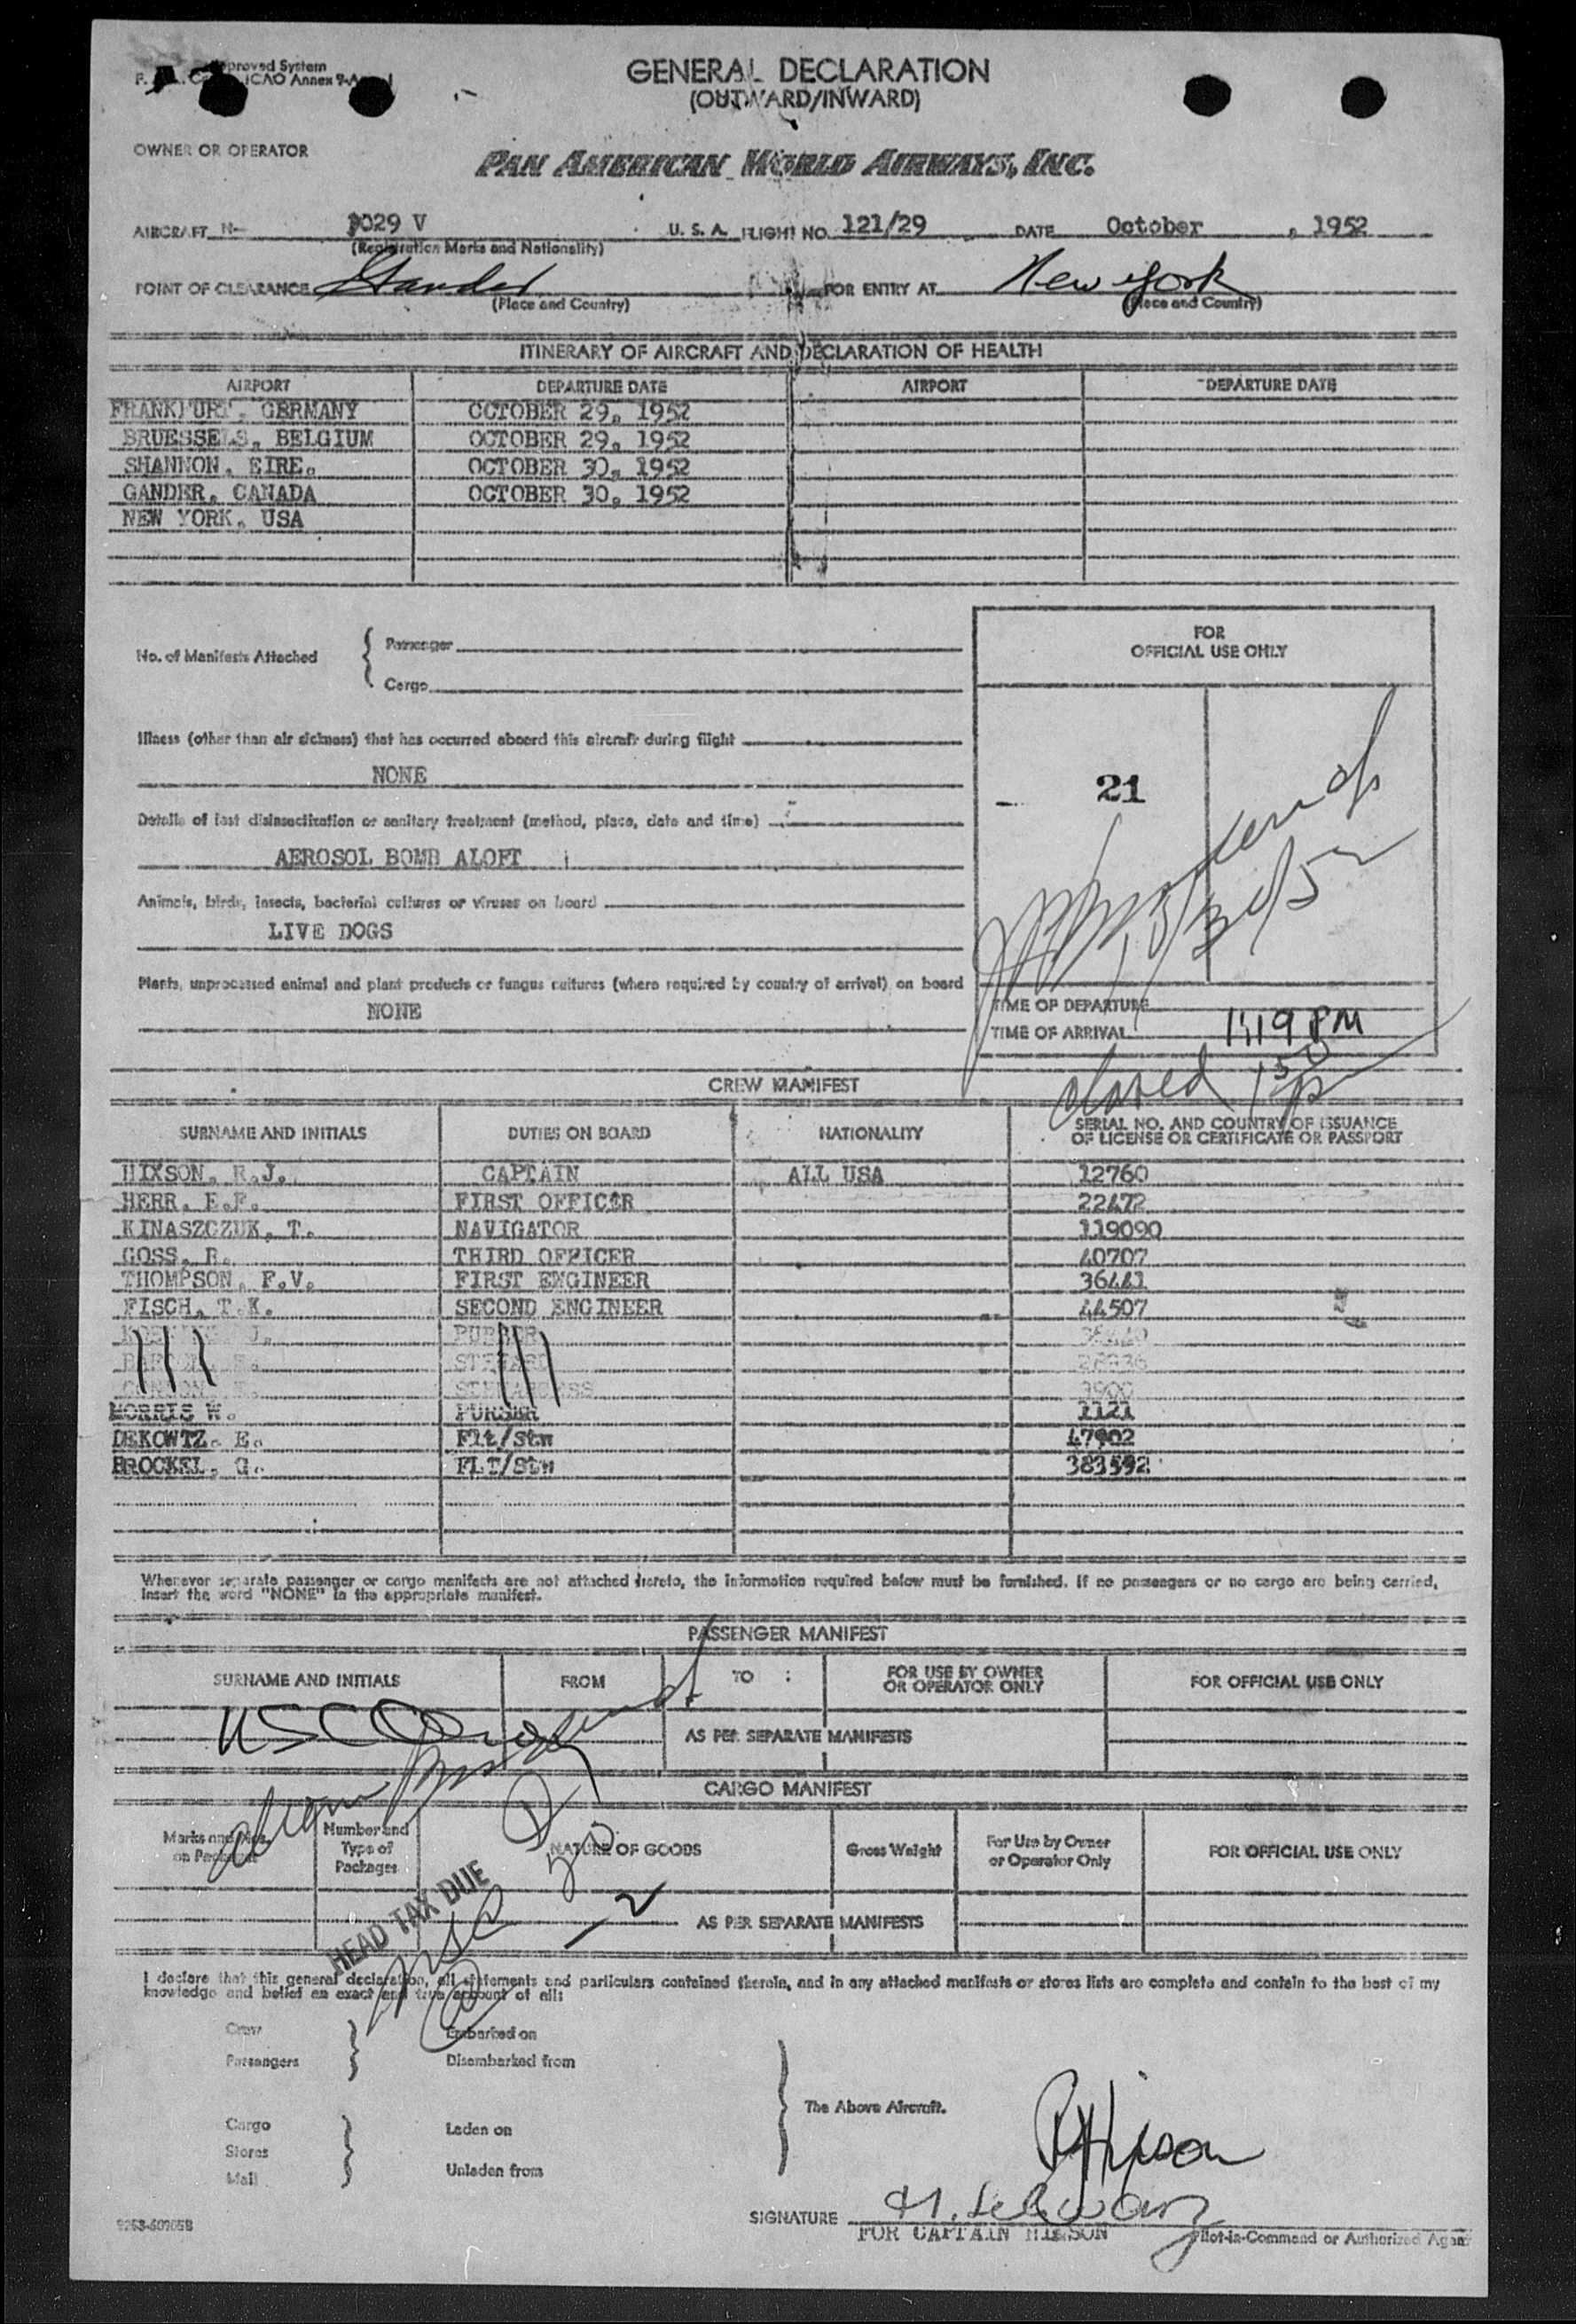 Approved System
ICAO Annex 9-
GENERAL DECLARATION
(OUTWARD/INWARD)
OWNER OR OPERATOR
PAN AMERICAN WORLD AIRWAYS, INC.
AIRCRAFT N- 1029 V U. S. A. FLIGHT NO. 121/29 DATE October , 1952
(Registration Marks and Nationality)
POINT OF CLEARANCE Gander FOR ENTRY AT New York
(Place and Country) (Place and Country)
ITINERARY OF AIRCRAFT AND DECLARATION OF HEALTH
AIRPORT DEPARTURE DATE AIRPORT DEPARTURE DATE
FRANKFURT, GERMANY OCTOBER 29, 1952
BRUESSELS, BELGIUM OCTOBER 29, 1952
SHANNON, EIRE. OCTOBER 30, 1952
GANDER, CANADA OCTOBER 30, 1952
NEW YORK, USA
FOR
OFFICIAL USE ONLY
No. of Manifests Attached { Passenger
Cargo
Illness (other than air sickness) that has occurred aboard this aircraft during flight
NONE
21
Details of last disinsectization or sanitary treatment (method, place, date and time)
AEROSOL BOMB ALOFT
Animals, birds, insects, bacterial cultures or viruses on board
LIVE DOGS
10/30/52
Plants, unprocessed animal and plant products or fungus cultures (where required by country of arrival) on board
NONE
TIME OF DEPARTURE
TIME OF ARRIVAL 1:19 PM
closed 150 p
CREW MANIFEST
SURNAME AND INITIALS DUTIES ON BOARD NATIONALITY SERIAL NO. AND COUNTRY OF ISSUANCE
OF LICENSE OR CERTIFICATE OR PASSPORT
HIXSON, R.J. CAPTAIN ALL USA 12760
HERR, E.F. FIRST OFFICER 22472
KINASZCZUK, T. NAVIGATOR 119090
GOSS, R. THIRD OFFICER 40707
THOMPSON, F.V. FIRST ENGINEER 36441
FISCH, T.K. SECOND ENGINEER 44507
PURSER
STEWARD
STEWARDESS
MORRIS W. PURSER 1121
DEKOWTZ, E. Flt/Stw 47902
BROCKEL, G. FLT/Stw 383592
Whenever separate passenger or cargo manifests are not attached hereto, the information required below must be furnished. If no passengers or no cargo are being carried,
insert the word "NONE" in the appropriate manifest.
PASSENGER MANIFEST
SURNAME AND INITIALS FROM TO : FOR USE BY OWNER
OR OPERATOR ONLY FOR OFFICIAL USE ONLY
AS PER SEPARATE MANIFESTS
CARGO MANIFEST
Marks and Nos.
on Packages Number and
Type of
Packages NATURE OF GOODS Gross Weight For Use by Owner
or Operator Only FOR OFFICIAL USE ONLY
HEAD TAX DUE
AS PER SEPARATE MANIFESTS
I declare that this general declaration, all statements and particulars contained therein, and in any attached manifests or stores lists are complete and contain to the best of my
knowledge and belief an exact and true account of all:
Crew } Embarked on
Passengers Disembarked from
} The Above Aircraft.
Cargo Laden on
Stores }
Mail Unladen from
RJ Hixson
SIGNATURE H. Schwarz
FOR CAPTAIN HIXSON Pilot-in-Command or Authorized Agent